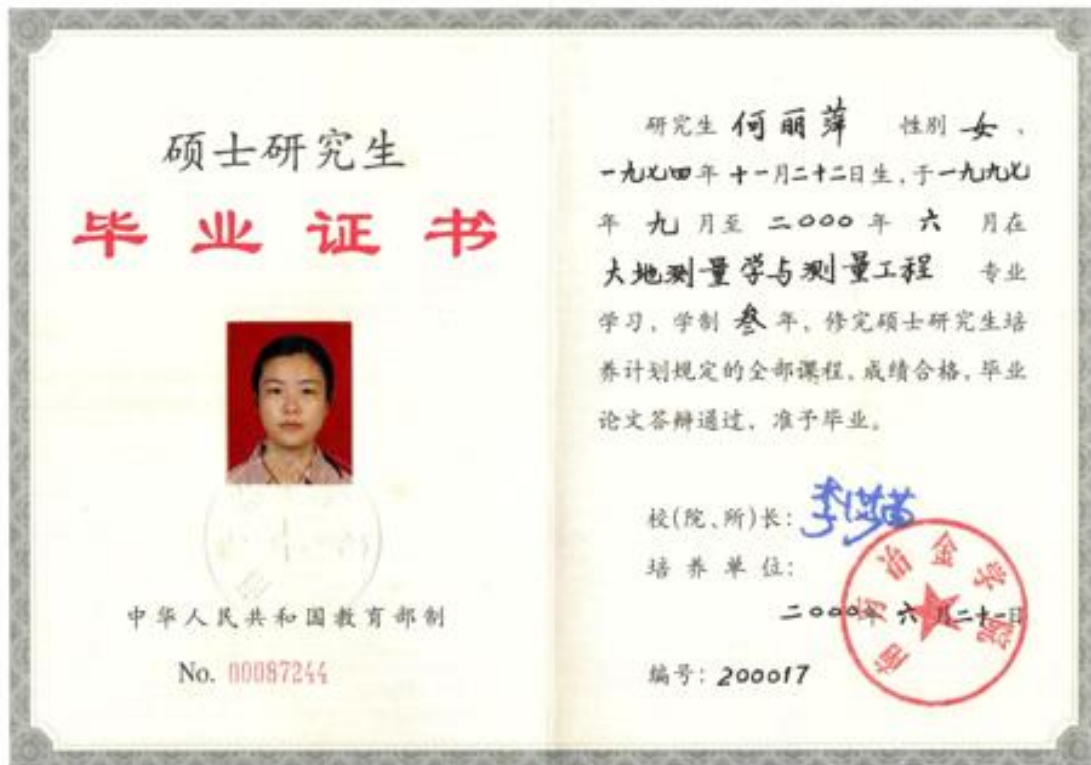 硕士研究生
毕业证书
中华人民共和国教育部制
No. 00087244
研究生 何丽萍 性别 女、
一九七四年十一月二十二日生,于一九九七
年 九 月至 二〇〇〇 年 六 月在
大地测量学与测量工程 专业
学习,学制 叁 年,修完硕士研究生培
养计划规定的全部课程,成绩合格,毕业
论文答辩通过,准予毕业。
校(院、所)长:
培养单位:
南方冶金学院
二〇〇〇年 六 月二十一日
编号:200017